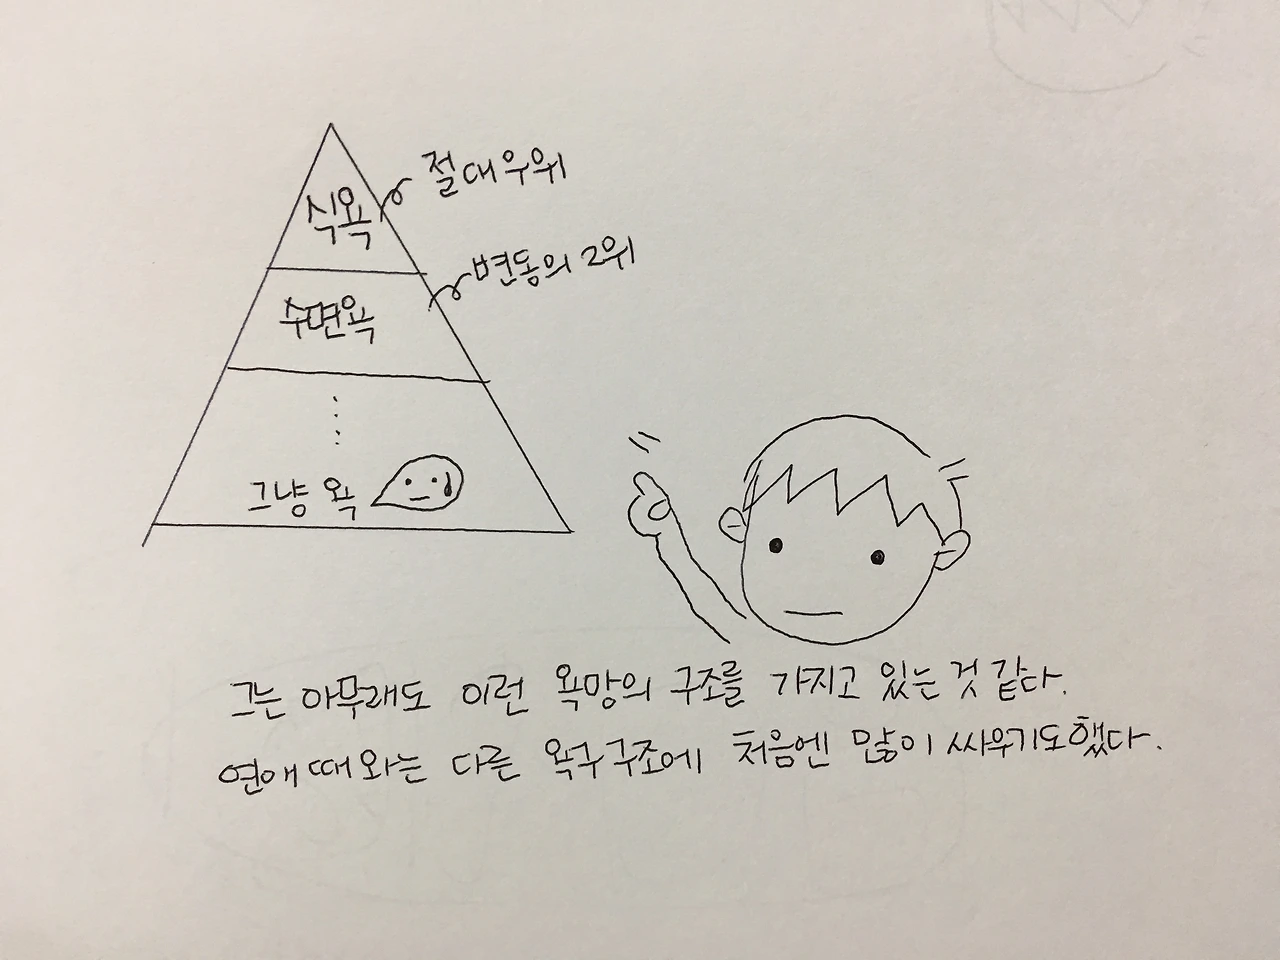 식욕
절대우위
수면욕
변동의 2위
그냥 욕
그는 아무래도 이런 욕망의 구조를 가지고 있는 것 같다.
연애 때와는 다른 욕구구조에 처음엔 많이 싸우기도 했다.